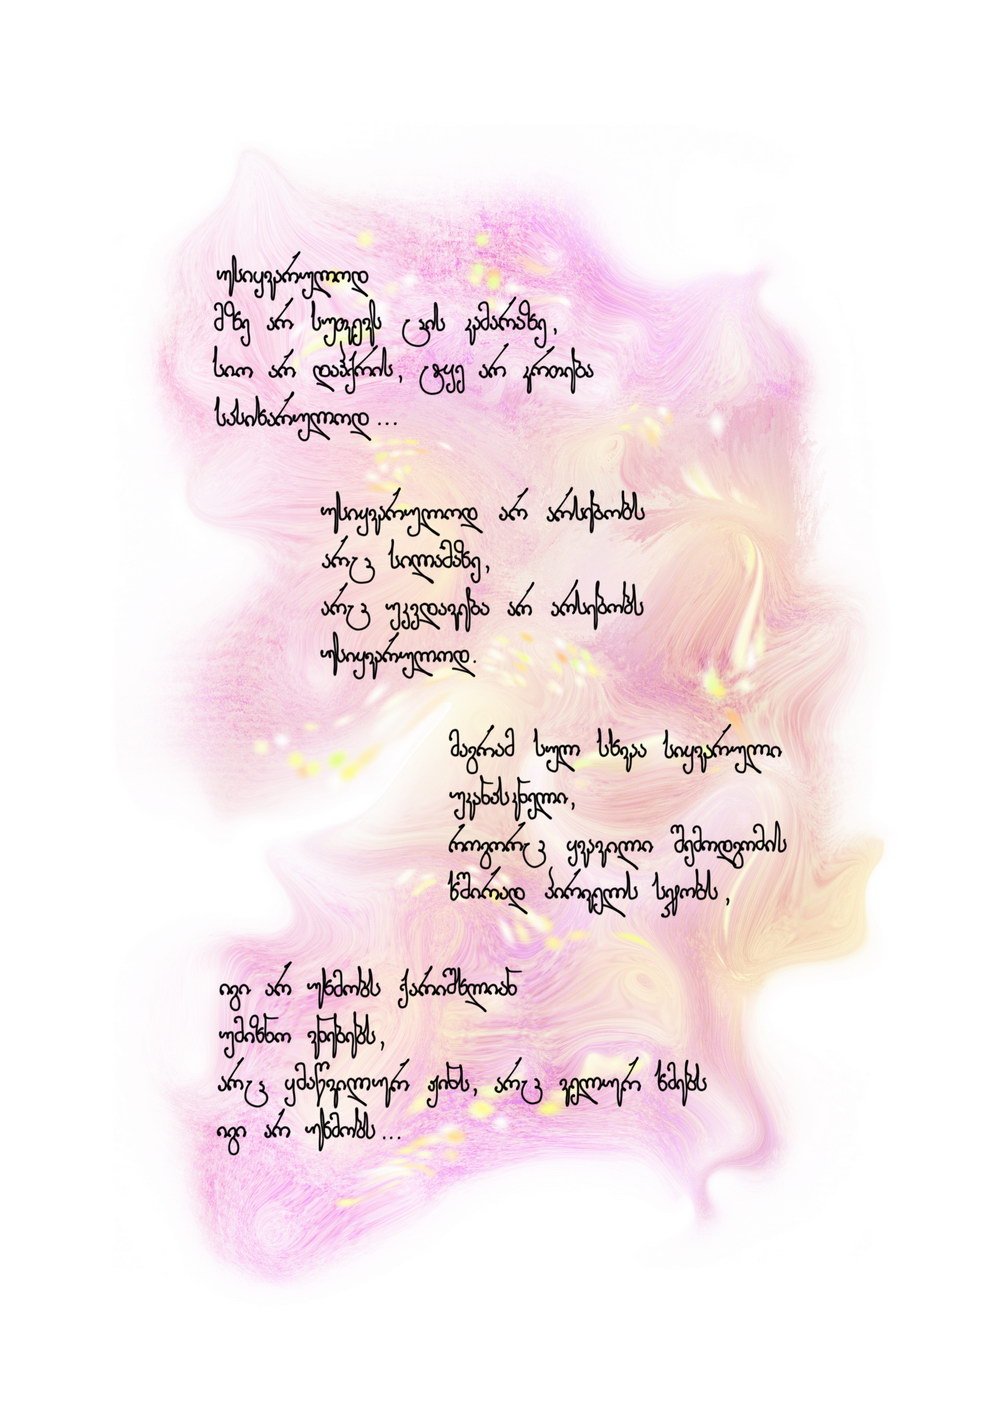 უსიყვარულოდ
მზე არ სუფევს ცის კამარაზე,
სიო არ დაჰქრის, ტყე არ კრთება
სასიხარულოდ...
უსიყვარულოდ არ არსებობს
არც სილამაზე,
არც უკვდავება არ არსებობს
უსიყვარულოდ.
მაგრამ სულ სხვაა სიყვარული
უკანასკნელი,
როგორც ყვავილი შემოდგომის
ხშირად პირველს სჯობს,
იგი არ უხმობს ქარიშხლიან
უმიზნო ვნებებს,
არც ყმაწვილურ ჟინს, არც ველურ ხმებს
იგი არ უხმობს...